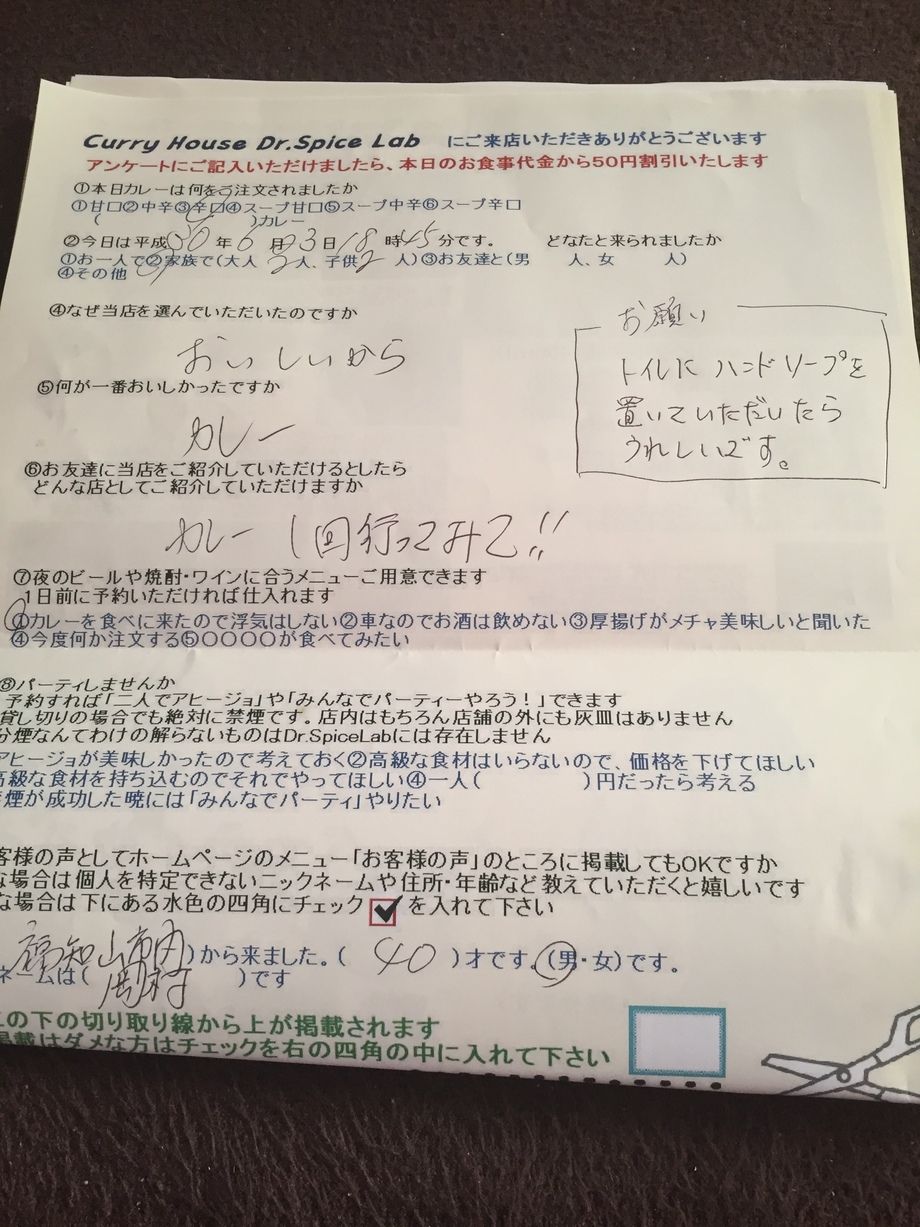 Curry House Dr.Spice Lab にご来店いただきありがとうございます
アンケートにご記入いただけましたら、本日のお食事代金から50円割引いたします
①本日カレーは何をご注文されましたか
①甘口②中辛③辛口④スープ甘口⑤スープ中辛⑥スープ辛口
( )カレー
②今日は平成30年6月23日18時45分です。 どなたと来られましたか
①お一人で②家族で(大人 2人、子供2 人)③お友達と(男 人、女 人)
④その他
④なぜ当店を選んでいただいたのですか
おいしいから
⑤何が一番おいしかったですか
カレー
⑥お友達に当店をご紹介していただけるとしたら
どんな店としてご紹介していただけますか
カレー 1回行ってみて!!
お願い
トイレに ハンドソープを
置いていただいたら
うれしいです。
⑦夜のビールや焼酎・ワインに合うメニューご用意できます
1日前に予約いただければ仕入れます
①カレーを食べに来たので浮気はしない②車なのでお酒は飲めない③厚揚げがメチャ美味しいと聞いた
④今度何か注文する⑤〇〇〇〇が食べてみたい
⑧パーティしませんか
予約すれば「二人でアヒージョ」や「みんなでパーティーやろう!」できます
貸し切りの場合でも絶対に禁煙です。店内はもちろん店舗の外にも灰皿はありません
分煙なんてわけの解らないものはDr.SpiceLabには存在しません
アヒージョが美味しかったので考えておく②高級な食材はいらないので、価格を下げてほしい
高級な食材を持ち込むのでそれでやってほしい④一人( )円だったら考える
煙が成功した暁には「みんなでパーティ」やりたい
客様の声としてホームページのメニュー「お客様の声」のところに掲載してもOKですか
な場合は個人を特定できないニックネームや住所・年齢など教えていただくと嬉しいです
な場合は下にある水色の四角にチェック を入れて下さい
福知山市内)から来ました。( 40 )才です。(男・女)です。
ネームは( )です
この下の切り取り線から上が掲載されます
掲載はダメな方はチェックを右の四角の中に入れて下さい